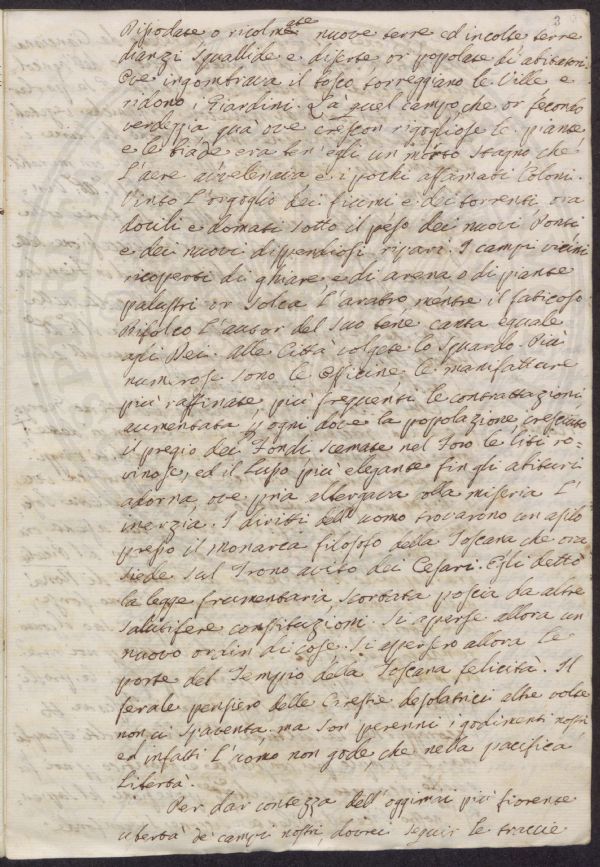 3
Ripodate o ricolmate nuove terre ed incolte terre
dianzi squallide e diserte or popolate di abitatori
Ove ingombrava il bosco torreggiano le Ville e
ridono i Giardini. Là quel campo, che or fecondo
verdeggia quà ove crescon rigogliose le piante
e le biade era ben egli un morto stagno che
l'aere avvelenava e i pochi affamati Coloni.
Vinto l'orgoglio dei fiumi e dei torrenti ora
docili e domati sotto il peso dei nuovi Ponti
e dei nuovi dispendiosi ripari. I campi vicini
ricoperti di ghiare, e di arena o di piante
palustri or solca l'aratro, mentre il faticoso
Bifolco l'autor del suo bene canta eguale
agli Dei. Alle Città volgete lo sguardo. Più
numerose sono le Officine le manifatture
più raffinate più frequenti le contrattazioni
aumentata p ogni dove la popolazione, cresciuto
il pregio dei Fondi scemate nel Foro le liti ro-
vinose, ed il Lusso più elegante fin gli abituri
adorna ove pria albergava colla miseria l'
inerzia. I diritti dell'uomo trovarono un asilo
presso il monarca filosofo della Toscana che ora
siede sul Trono avito dei Cesari. Egli dettò
la legge frumentaria scortata poscia da altre
salutifere constituzioni. Si aperse allora un
nuovo ordin di cose. Si apersero allora le
porte del Tempio della Toscana felicità. Il
ferale pensiero delle Carestie desolatrici altre volte
non ci spaventa, ma son perenni i godimenti nostri
ed infatti l'uomo non gode, che nella pacifica
Libertà.
Per dar contezza dell'oggimai più fiorente
ubertà de' campi nostri, dovrei seguir le traccie